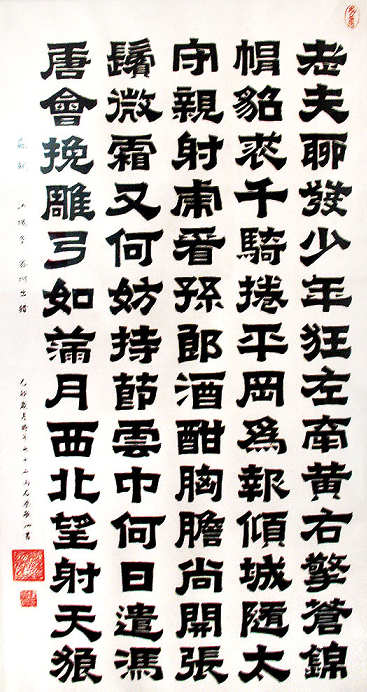 老夫聊發少年狂左牽黄右擎蒼錦
帽貂裘千騎捲平岡爲報傾城隨太
守親射虎看孫郎酒酣胸膽尚開張
鬢微霜又何妨持節雲中何日遣馮
唐會挽雕弓如滿月西北望射天狼
蘇軾 江城子 密州出獵